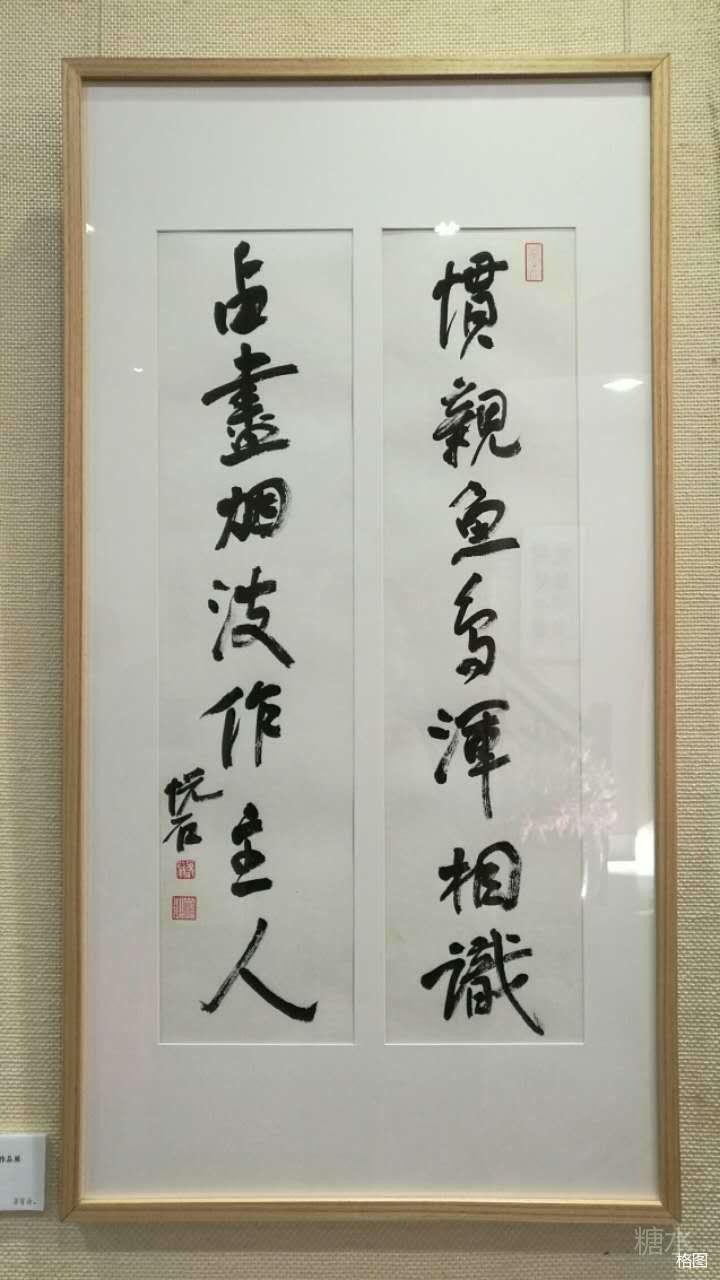 慣親魚鳥渾相識
占盡烟波作主人
悦石
作品展
糖水
格图